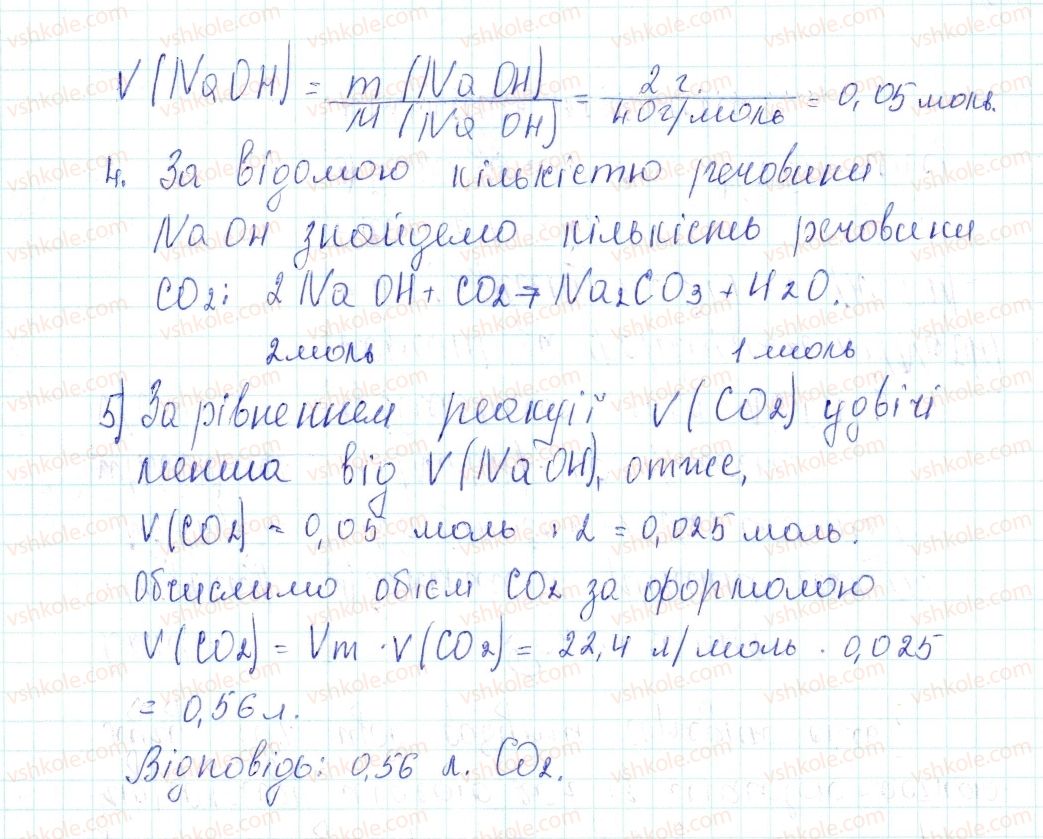 ν(NaOH) = m(NaOH) / M(NaOH) = 2 г. / 40г/моль = 0,05 моль.
4. За відомою кількістю речовини
NaOH знайдемо кількість речовини
CO2: 2NaOH + CO2 = Na2CO3 + H2O.
2моль 1 моль
5) За рівненнем реакції ν(CO2) удвічі
менша від ν(NaOH), отже,
ν(CO2) = 0,05 моль : 2 = 0,025 моль.
Обчислимо обієм CO2 за формолою
V(CO2) = Vm · ν(CO2) = 22,4 л/моль · 0,025
= 0,56 л.
Відповідь: 0,56 л. CO2.